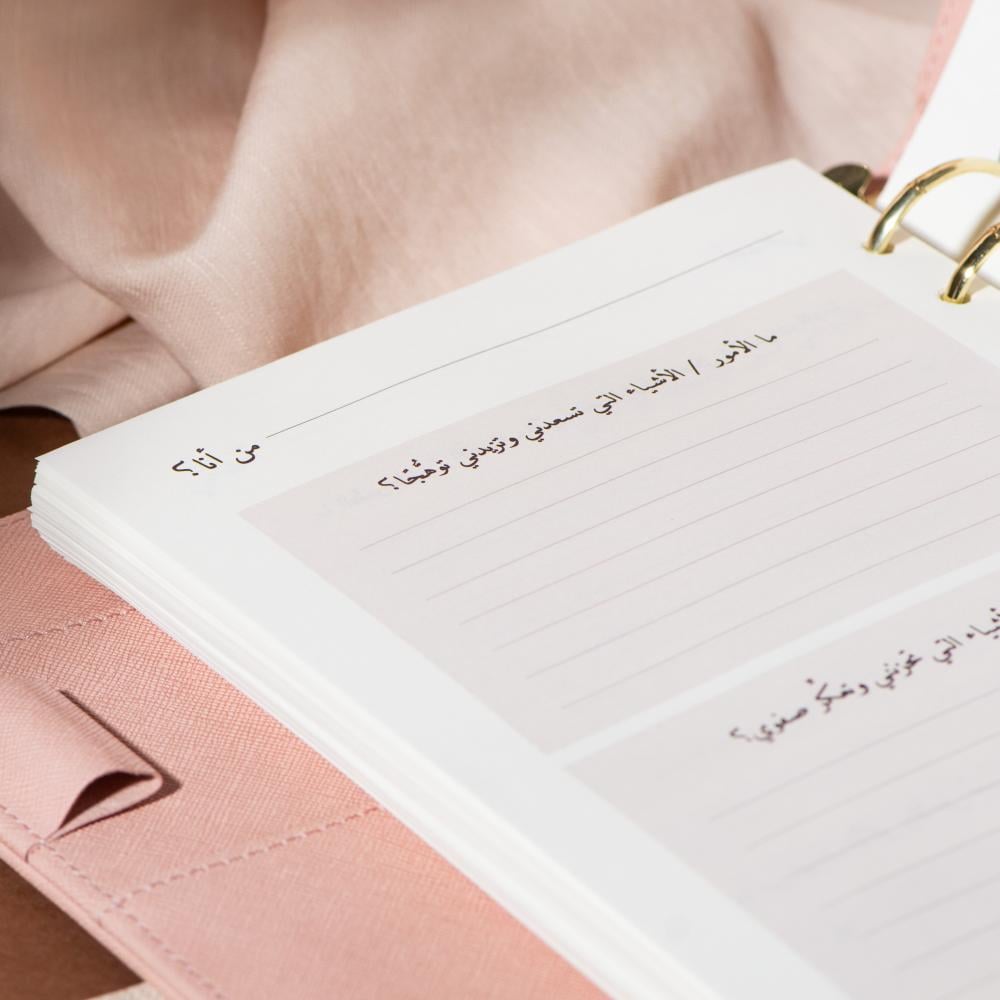 من أنا؟
ما الأمور / الأشياء التي تسعدني وتزيدني توهّجًا؟
التي تحزنني وتعكّر صفوي؟